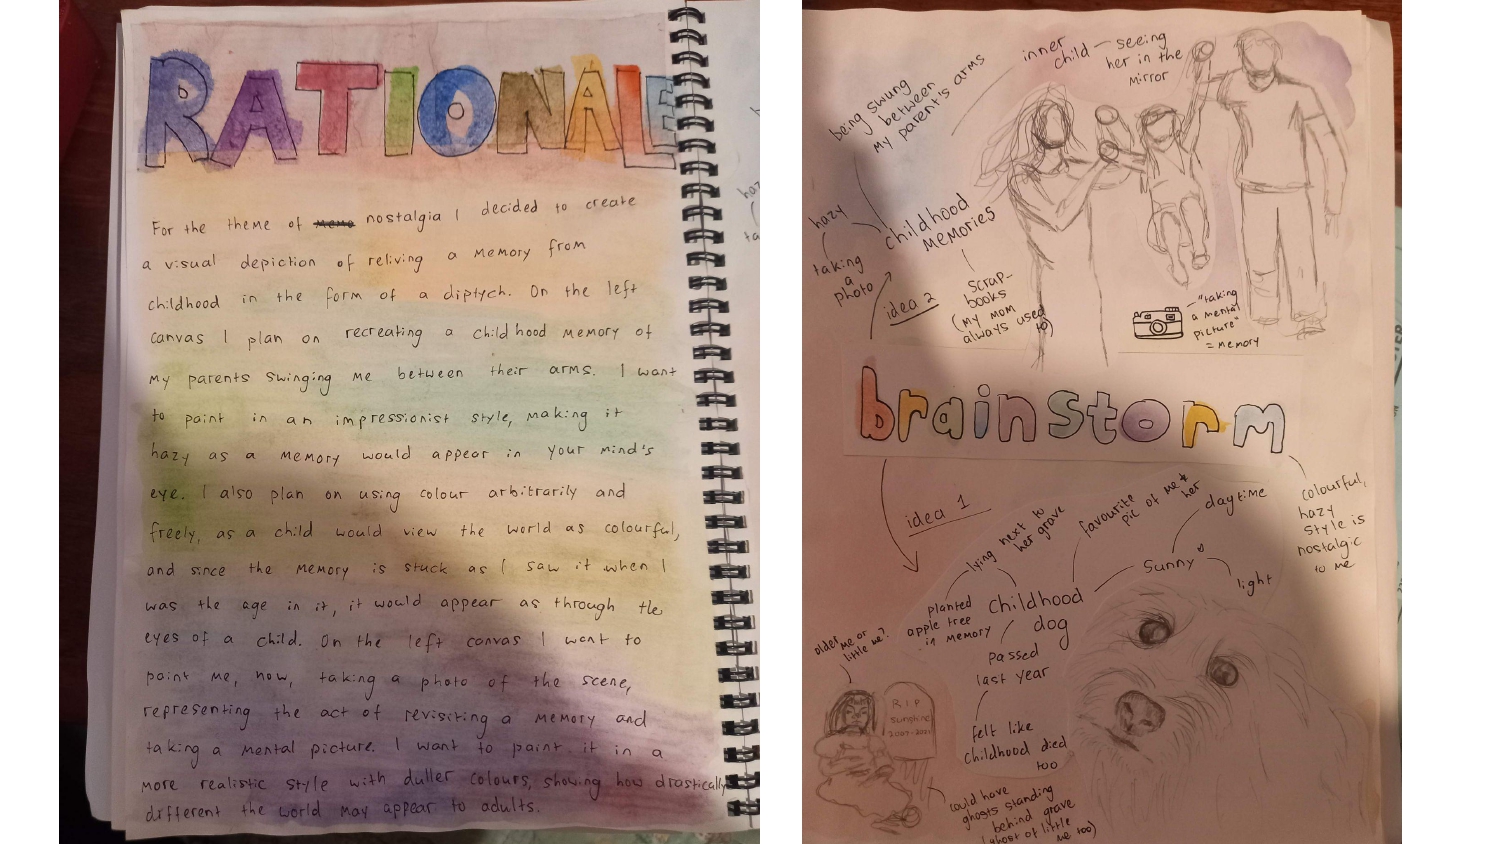 RATIONALE
For the theme of nostalgia I decided to create
a visual depiction of reliving a memory from
childhood in the form of a diptych. On the left
canvas I plan on recreating a childhood memory of
my parents swinging me between their arms. I want
to paint in an impressionist style, making it
hazy as a memory would appear in your mind's
eye. I also plan on using colour arbitrarily and
freely, as a child would view the world as colourful,
and since the memory is stuck as I saw it when I
was the age in it, it would appear as through the
eyes of a child. On the left canvas I want to
paint me, now, taking a photo of the scene,
representing the act of revisiting a memory and
taking a mental picture. I want to paint it in a
more realistic style with duller colours, showing how drastically
different the world may appear to adults.
being swung
between
my parent's arms
inner
child — seeing
her in the
mirror
hazy
taking
a
photo
childhood
memories
idea 2
scrap-
books
(my mom
always used
to)
"taking
a mental
picture"
= memory
brainstorm
idea 1
colourful,
hazy
style is
nostalgic
to me
lying next to
her grave
favourite
pic of me &
her
daytime
sunny
light
planted
apple tree
in memory
childhood
dog
passed
last year
felt like
childhood died
too
older me or
little me?
RIP
sunshine
could have
ghosts standing
behind grave
(ghost of little
me too)